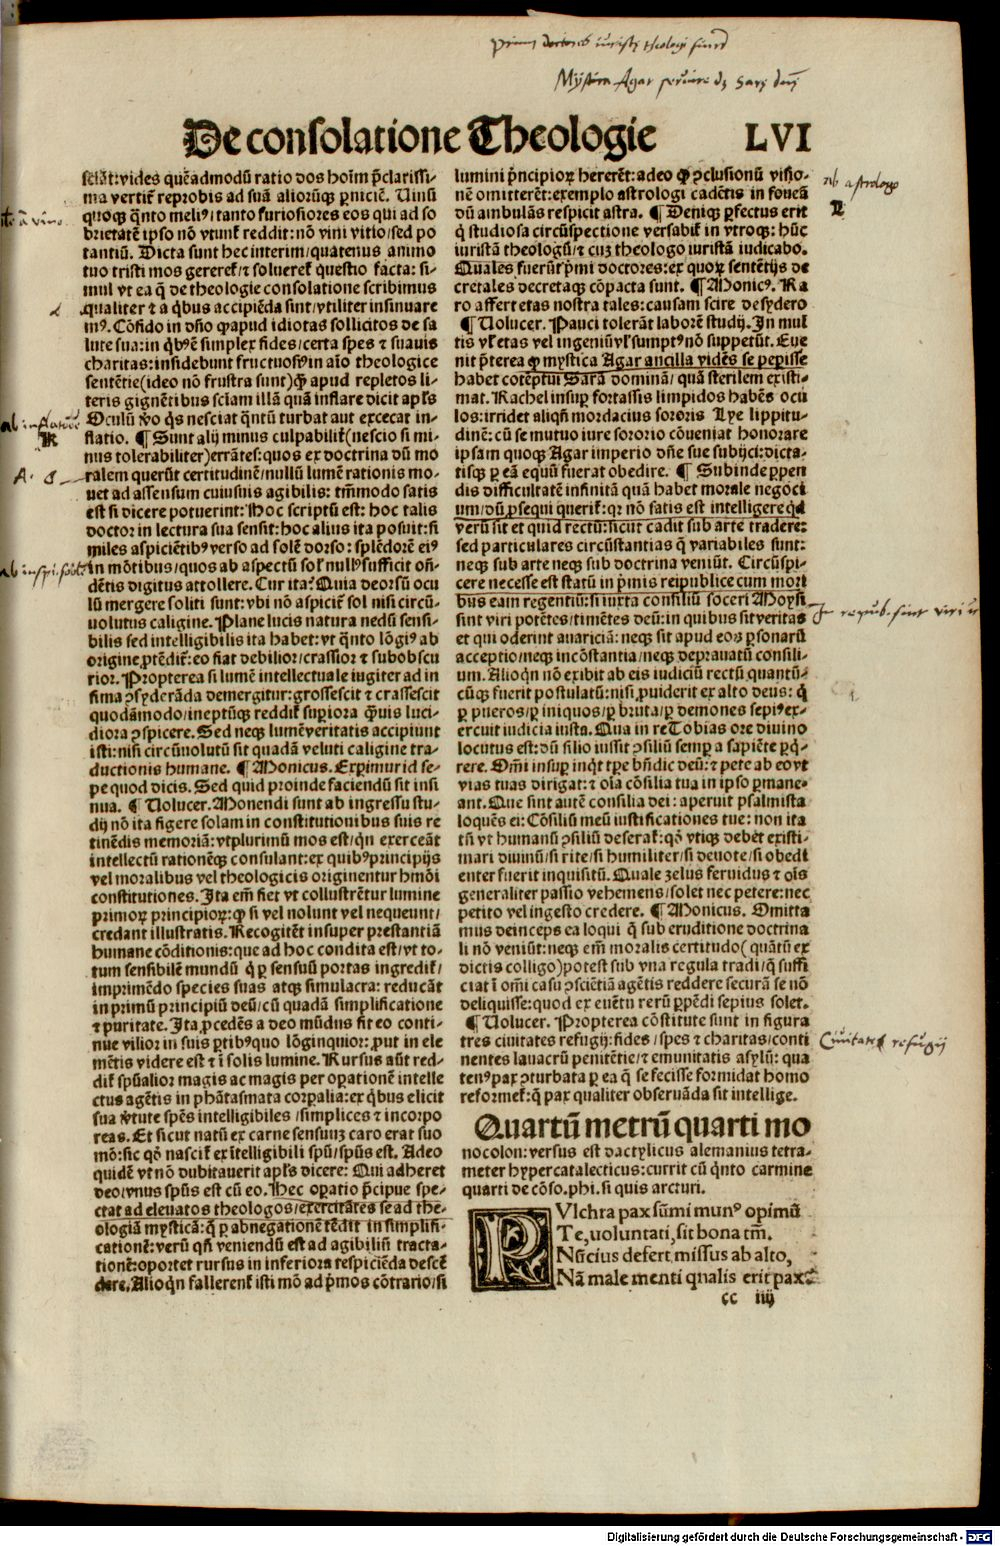 De consolatione Theologie LVI
sciāt: vides quēadmodū ratio dos hoīm p̄clarissi-
ma vertit̄ reprobis ad suā aliorūqꝫ ꝑniciē. Uinū
quoqꝫ q̄nto meliꝰ, tanto furiosiores eos qui ad so
brietatē ipso nō vtunt̄ reddit: nō vini vitio/sed po
tantiū. Dicta sunt hec interim/quatenus animo
tuo tristi mos gereret̄/⁊ solueret̄ questio facta: si-
mul vt ea q̄ de theologie consolatione scribimus
qualiter ⁊ a q̄bus accipiēda sint/vtiliter insinuare
mꝰ. Cōfido in dn̄o ꝙ apud idiotas sollicitos de sa
lute sua: in q̄bꝰ ē simplex fides/certa spes ⁊ suauis
charitas: insidebunt fructuosiꝰ in aīo theologice
sentētie(ideo nō frustra sunt)ꝙ apud repletos li-
teris gignētibus sciam illā quā inflare dicit apl's
Oculū ꝟo q̄s nesciat q̄ntū turbat aut excecat in-
flatio. ¶ Sunt alij minus culpabilit̄(nescio si mi-
nus tolerabiliter)errātes: quos ex doctrina dū mo
ralem querūt certitudinē/nullū lumē rationis mo-
uet ad assensum cuiusuis agibilis: tm̄modo satis
est si dicere potuerint: Hoc scriptū est: hoc talis
doctor in lectura sua sensit: hoc alius ita posuit: si
miles aspiciētibꝰ verso ad solē dorso: splēdorē eiꝰ
in mōtibus/quos ab aspectū sol' nullꝰ sufficit on̄-
dētis digitus attollere. Cur ita? Quia deorsū ocu
lū mergere soliti sunt: vbi nō aspicit̄ sol nisi circū-
uolutus caligine. Plane lucis natura nedū sensi-
bilis sed intelligibilis ita habet: vt q̄nto lōgiꝰ ab
origine ꝓtēdit̄: eo fiat debilior/crassior ⁊ subobscu
rior. Propterea si lumē intellectuale iugiter ad in
fima ↄsyderāda demergitur: grossescit ⁊ crassescit
quodāmodo/ineptūqꝫ reddit̄ suꝑiora q̄uis luci-
diora ↄspicere. Sed neqꝫ lumē veritatis accipiunt
isti: nisi circūuolutū sit quadā veluti caligine tra-
ductionis humane. ¶ Monicus. Exꝑimur id se-
pe quod dicis. Sed quid proinde faciendū sit insi
nua. ¶ Uolucer. Monendi sunt ab ingressu stu-
dij nō ita figere solam in constitutionibus suis re
tinēdis memoriā: vt plurimū mos est/q̄n exerceāt
intellectū rationēqꝫ consulant: ex quibꝰ principijs
vel moralibus vel theologicis originentur hmōi
constitutiones. Ita em̄ fiet vt collustrētur lumine
primoꝝ principioꝝ: ꝙ si vel nolunt vel nequeunt/
credant illustratis. Recogitēt insuper prestantiā
humane cōditionis: que ad hoc condita est/vt to-
tum sensibilē mundū q̄ ꝑ sensuū portas ingredit̄/
imprimēdo species suas atqꝫ simulacra: reducāt
in primū principiū deū/cū quadā simplificatione
⁊ puritate. Ita ꝓcedēs a deo mūdus fit eo conti-
nue vilior in suis ꝑtibꝰ quo lōginquior: ꝓut in ele
mētis videre est ⁊ ī solis lumine. Rursus aūt red-
dit̄ spūalior magis ac magis per oꝑationē intelle
ctus agētis in phātasmata corꝑalia: ex q̄bus elicit
sua ꝟtute spēs intelligibiles/simplices ⁊ incorpo
reas. Et sicut natū ex carne sensuuꝫ caro erat suo
mō: sic qō nascit̄ ex ītelligibili spū/spūs est. Adeo
quidē vt nō dubitauerit apl's dicere: Qui adheret
deo/vnus spūs est cū eo. Hec oꝑatio p̄cipue spe-
ctat ad eleuatos theologos/exercitātes se ad the-
ologiā mysticā: q̄ ꝑ abnegationē tēdit in simplifi-
cationē: verū qn̄ veniendū est ad agibiliū tracta-
tionē: oportet rursus in inferiora respiciēda descē
dere. Alioq̄n fallerent̄ isti mō ad p̄mos cōtrario/si
lumini p̄ncipioꝝ hererēt: adeo ꝙ ↄclusionū visio-
nē omitterēt: exemplo astrologi cadētis in foueā
dū ambulās respicit astra. ¶ Deniqꝫ ꝑfectus erit
q̄ studiosa circūspectione versabit̄ in vtroqꝫ: hūc
iuristā theologū/⁊ cuꝫ theologo iuristā iudicabo.
Quales fuerūt p̄mi doctores: ex quoꝝ sentētijs de
cretales decretaqꝫ cōpacta sunt. ¶ Monicꝰ. Ra
ro affert etas nostra tales: causam scire desydero
¶ Uolucer. Pauci tolerāt laborē studij. In mul
tis vl' etas vel ingeniū vl' sumptꝰ nō suppetūt. Eue
nit p̄terea ꝙ mystica Agar ancilla vidēs se peperisse
habet cōtēptui Sarā dominā/quā sterilem existi-
mat. Rachel insuꝑ fortassis limpidos habēs ocu
los: irridet aliqn̄ mordacius sororis Lye lippitu-
dinē: cū se mutuo iure sororio cōueniat honorare
ipsam quoqꝫ Agar imperio dn̄e sue subijci: dicta-
tisqꝫ ꝑ eā equū fuerat obedire. ¶ Subinde ꝑpen
dis difficultatē infinitā quā habet morale negoci
um/dū ꝓsequi querit̄: qꝛ nō satis est intelligere qd̄
verū sit et quid rectū: sicut cadit sub arte tradere:
sed particulares circūstantias q̄ variabiles sunt:
neqꝫ sub arte neqꝫ sub doctrina veniūt. Circūspi-
cere necesse est statū in p̄mis reipublice cum mori
bus eam regentiū: si iuxta consiliū soceri Moysi
sint viri potētes/timētes deū: in quibus sit veritas
et qui oderint auariciā: neqꝫ sit apud eos ꝑsonarū
acceptio/neqꝫ incōstantia/neqꝫ deprauatū consili-
um. Alioq̄n nō exibit ab eis iudiciū rectū quantū-
cūqꝫ fuerit postulatū: nisi ꝓuiderit ex alto deus: q̄
ꝑ pueros/ꝑ iniquos/ꝑ bruta/ꝑ demones sepiꝰ ex-
ercuit iudicia iusta. Qua in re Tobias ore diuino
locutus est: dū filio iussit ↄsiliū semꝑ a sapiēte ꝑq̄-
rere. Om̄i insuꝑ inq̄t tꝑe bn̄dic deū: ⁊ pete ab eo vt
vias tuas dirigat: ⁊ oīa cōsilia tua in ipso ꝑmane-
ant. Que sint autē consilia dei: aperuit psalmista
loquēs ei: Cōsiliū meū iustificationes tue: non ita
tn̄ vt humanū ↄsiliū deserat̄: qō vtiqꝫ debet existi-
mari diuinū/si rite/si humiliter/si deuote/si obedi
enter fuerit inquisitū. Quale zelus feruidus ⁊ oīs
generaliter passio vehemens/solet nec petere: nec
petito vel ingesto credere. ¶ Monicus. Omitta
mus deinceps ea loqui q̄ sub eruditione doctrina
li nō veniūt: neqꝫ em̄ moralis certitudo(quātū ex
dictis colligo)potest sub vna regula tradi/q̄ suffi
ciat ī om̄i casu ↄsciētiā agētis reddere securā se nō
deliquisse: quod ex euētu rerū ꝑpēdi sepius solet.
¶ Uolucer. Propterea cōstitute sunt in figura
tres ciuitates refugij: fides/spes ⁊ charitas/conti
nentes lauacrū penitētie/⁊ emunitatis asylū: qua
tenꝰ pax ↄturbata ꝑ ea q̄ se fecisse formidat homo
reformet̄: q̄ pax qualiter obseruāda sit intellige.
Quartū metrū quarti mo
nocolon: versus est dactylicus alemanius tetra-
meter hypercatalecticus: currit cū q̄nto carmine
quarti de cōso. phi. si quis arcturi.
PUlchra pax sūmi munꝰ opimū
Te, voluntati, sit bona tm̄.
Nūcius defert missus ab alto,
Nā male menti qualis erit pax?
cc iiij
Digitalisierung gefördert durch die Deutsche Forschungsgemeinschaft - DFG